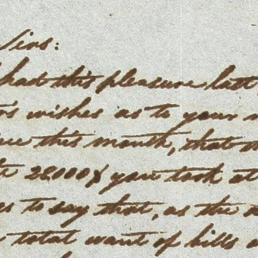 Sirs:
had this pleasure last
wishes as to your
this month, that
22000$ you took at
to say that, as the
total want of bills